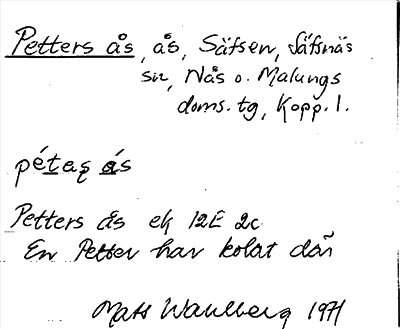 Petters ås, ås, Säfsen, Säfsnäs
sn, Nås o. Malungs
doms. tg, Kopp. l.
pétaș ás
Petters ås ek 12E 2c
En Petter har kolat där
Mats Wahlberg 1971